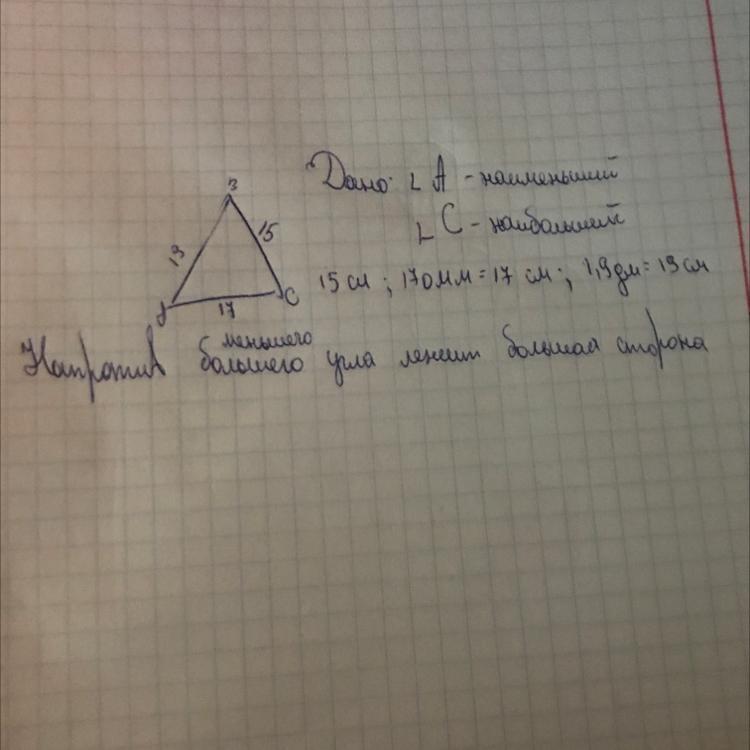 Дано: ∟A - наименьший
∟C - наибольший
В
19
15
17
С
15 см ; 170 мм = 17 см ; 1,9 дм = 19 см
меньшего
Напротив большего угла лежит большая сторона